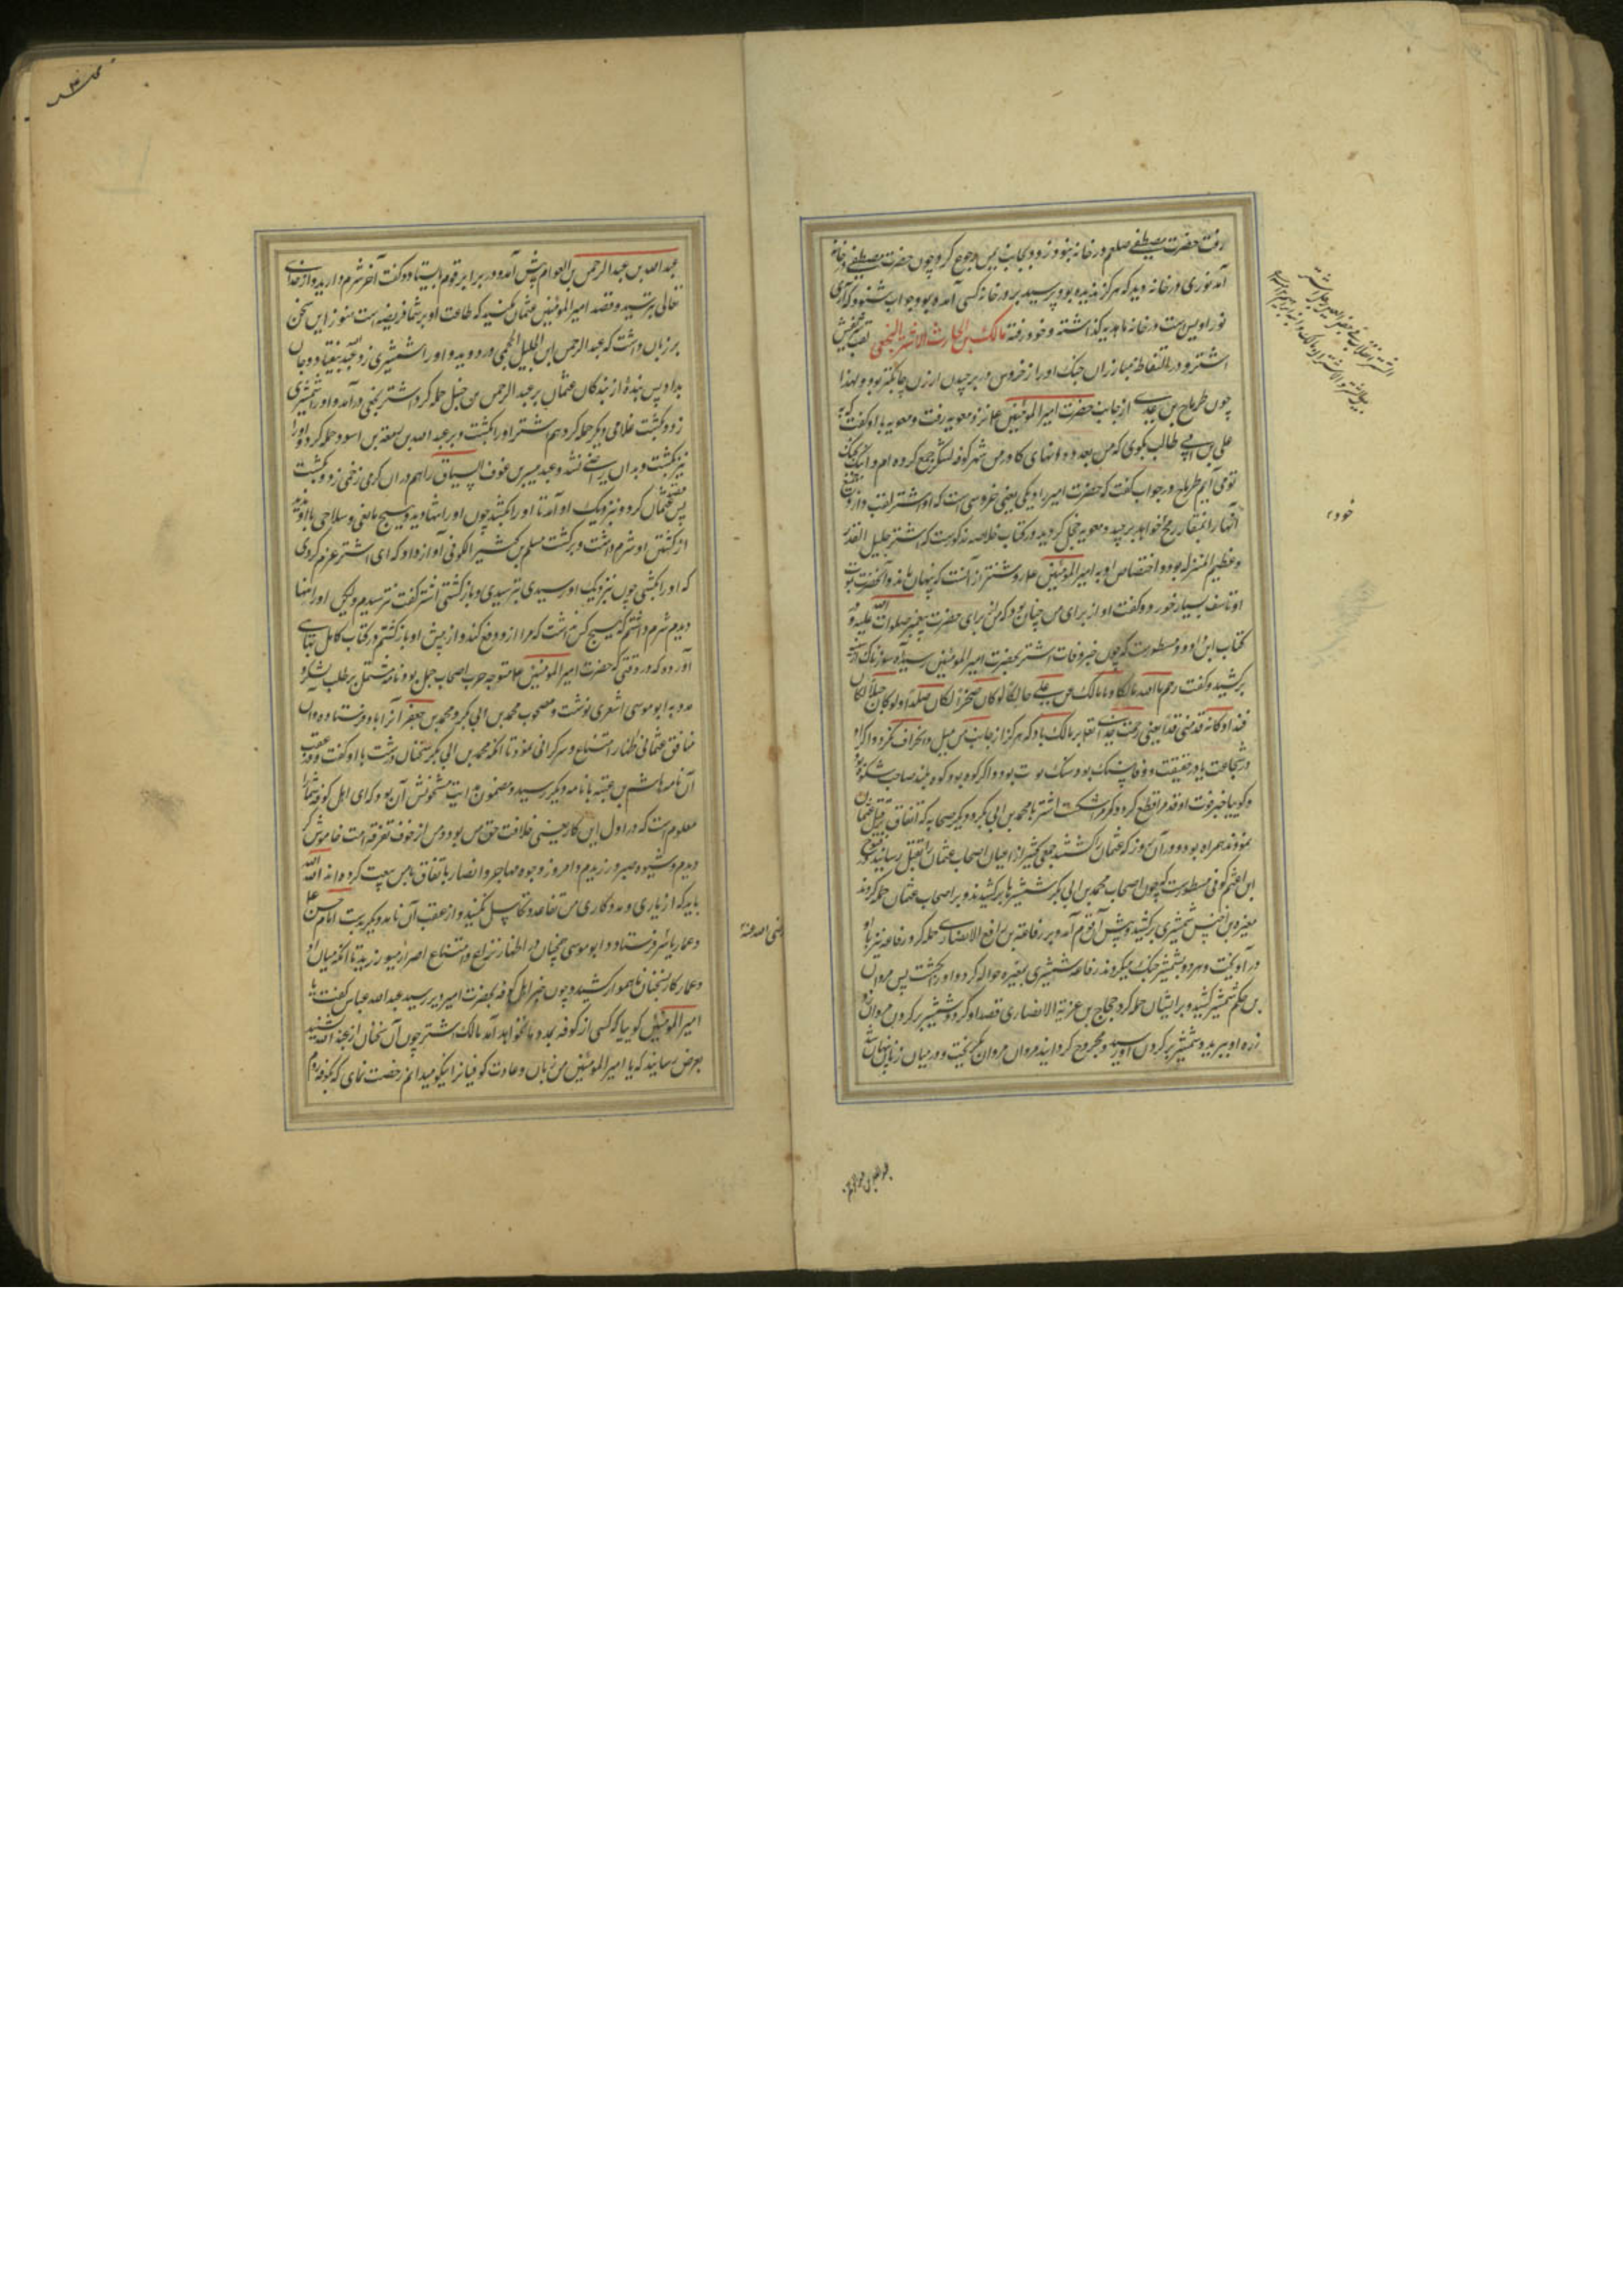 رفت حضرت مصطفی صلعم در خانه نبود زود بجانب یمن رجوع کرد و چون حضرت مصطفی در خانه
آمد نوری در خانه دید که هرگز ندیده بود پرسید بر در خانه کسی آمده بود جواب شنود که آری
نور اویس است در خانه ما هدیه گذاشته و خود رفته مالک بن الحارث الاشتر النخعی لقب شریفش
اشتر و در التقاط مبارزان جنک او را از خروس در برچیدن ارزن چابکتر بود و لهذا
چون طرماح بن عدی از جانب حضرت امیر المومنین ع نزد معویه رفت و معویه باو گفت که به
علی بن ابی طالب بگوی که من بعدد دانهای کاورس شهر کوفه لشکر جمع کرده ام و اینک بجنک
تو می آیم طرماح در جواب گفت که حضرت امیر را دیکی یعنی خروسی است که او اشتر لقب دارد
آنها را بمنقار رمح خواهد برچید و معویه خجل گردید در کتاب خلاصه مذکورست که اشتر جلیل القدر
و عظیم المنزله بود و اختصاص او به امیر المومنین ع روشنتر از آنست که پنهان ماند و آنحضرت بموت
او تاسف بسیار خورد و گفت او از برای من چنان بود که من برای حضرت پیغمبر صلوات الله علیه و در
کتاب ابن داود مسطورست که چون خبر وفات اشتر بحضرت امیر المومنین رسید آه سوزناک از سینه
برکشید و گفت رحم الله مالکا و ما مالک عز علی هالکا لو کان صخرا لکان صلدا و لو کان جبلا لکان
فندا و کانه قد منی قدا یعنی رحمت خدای تعا بر مالک باد که هرگز از جانب من میل و انحراف نکرد و اگر او
در شجاعت یا در حقیقت و وفا سنک بود سنک سخت بود و اگر کوه بود کوه بلند صاحب شکوه بود
و گویا خبر فوت او قد مرا قطع کرد و کمر مرا شکست اشتر با محمد بن ابی بکر و دیگر صحابه که اتفاق بر قتل عثمان
نمودند همراه بود و در آن روز که عثمان را کشتند جمعی کثیر از اعیان اصحاب عثمان را بقتل رسانید در فتوح
ابن اعثم کوفی مسطورست که چون اصحاب محمد بن ابی بکر شمشیرها برکشیدند و بر اصحاب عثمان حمله کردند
مغیره بن اخنس شمشیری برکشید و پیش آن قوم آمد و بر رفاعه بن رافع الانصاری حمله کرد رفاعه نیز باو
در آویخت و هر دو بشمشیر جنک میکردند رفاعه شمشیری بمغیره حواله کرد و او را بکشت پس مروان
بن حکم شمشیر کشید و بر ایشان حمله کرد حجاج بن غزیه الانصاری قصد او کرد و شمشیر بر گردن مروان زد
زره او ببرید و شمشیر بر گردن او رسید و مجروح گردانید مروان گریخت و در میان زنان پنهان شد
خود
عبدالله بن عبدالرحمن بن العوام پیش آمد و در برابر قوم بایستاد و گفت آخر شرم دارید و از خدای
تعالی بترسید و قصد امیر المومنین عثمان نکنید که طاعت او بر شما فریضه است هنوز این سخن
بر زبان داشت که عبدالرحمن بن الحلیل الجمحی در دوید و او را شمشیری زد عبدالله بیفتاد و جان
بداد پس بندهٔ از بندکان عثمان بر عبدالرحمن بن حنبل حمله کرد اشتر نخعی درآمد و او را شمشیری
زد و بکشت غلامی دیگر حمله کرد هم اشتر او را بکشت و بر عبدالله بن ربیعة بن اسود حمله کرد و او را
نیز بکشت و بدان راضی نشد و عبد میسر بن عوف السیاق را هم دران گرمی زخمی زد و بکشت
پس قصد عثمان کرد و نزدیک او آمد تا او را بکشد چون او را تنها دید و هیچ مانعی و سلاحی با او ندید
از کشتن او شرم داشت و برگشت مسلم بن کثیر الکوفی آواز داد که ای اشتر عزم کردی
که او را بکشی چون نزدیک او رسیدی بترسیدی و بازگشتی اشتر گفت نترسیدم ولیکن او را تنها
دیدم شرم داشتم که هیچ کس نداشت که مرا از او دفع کند و از پیش او بازگشتم و در کتاب کامل بهائی
آورده که در وقتی که حضرت امیر المومنین ع متوجه حرب اصحاب جمل بود نامه مشتمل بر طلب لشکر و
مدد به ابو موسی اشعری نوشت و مصحوب محمد بن ابی بکر و محمد بن جعفر آنرا باو فرستاد و آن
منافق عثمانی اظهار امتناع و سرکرانی نمود تا آنکه محمد بن ابی بکر سخنان درشت باو گفت و در عقب
آن نامه هاشم بن عتبه با نامه دیگر رسید و مضمون هدایت مشحونش آن بود که ای اهل کوفه شما را
معلوم است که در اول این کار یعنی خلافت حق من بود و من از خوف تفرقه امت خاموش کر
دیدم و شیوه صبر ورزیدم و امروز وجوه مهاجر و انصار باتفاق با من بیعت کرده اند الله
باید که از یاری و مددکاری من تقاعد و تکاسل نکنید و از عقب آن نامه دیگر بدست امام حسن ع
و عمار یاسر فرستاد و ابو موسی همچنان در اظهار نزاع و امتناع اصرار میورزید تا آنکه میان او
و عمار کار بسخنان ناهموار کشید و چون خبر اهل کوفه بحضرت امیر دیر رسید عبدالله عباس گفت یا
امیر المومنین گوییا که کسی از کوفه بمدد ما نخواهد آمد مالک اشتر چون آن سخنان از عبدالله شنید
بعرض رسانید که یا امیر المومنین من زبان و عادت کوفیانرا نیکو میدانم رخصت نمای که بکوفه روم
رضی الله عنه